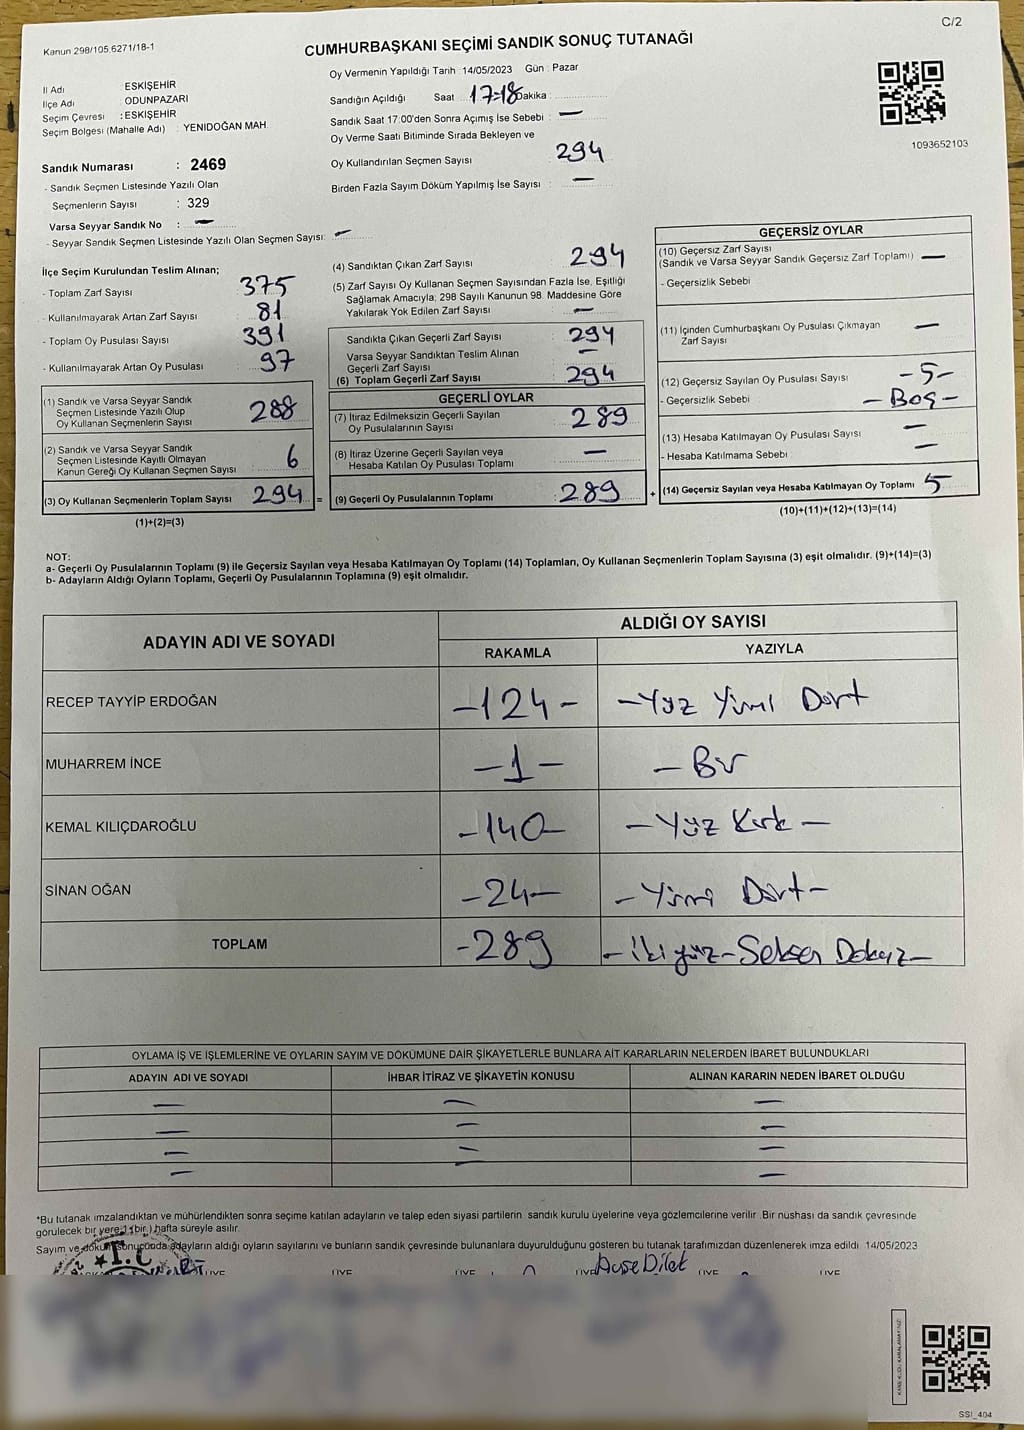 C/2
Kanun 298/105,6271/18-1
CUMHURBAŞKANI SEÇİMİ SANDIK SONUÇ TUTANAĞI
İl Adı : ESKİŞEHİR
İlçe Adı : ODUNPAZARI
Seçim Çevresi : ESKİŞEHİR
Seçim Bölgesi (Mahalle Adı) : YENIDOĞAN MAH.
Sandık Numarası : 2469
- Sandık Seçmen Listesinde Yazılı Olan
Seçmenlerin Sayısı : 329
Varsa Seyyar Sandık No : —
- Seyyar Sandık Seçmen Listesinde Yazılı Olan Seçmen Sayısı: —
Oy Vermenin Yapıldığı Tarih : 14/05/2023 Gün : Pazar
Sandığın Açıldığı Saat 17:18 Dakika :
Sandık Saat 17:00'den Sonra Açımış İse Sebebi : —
Oy Verme Saati Bitiminde Sırada Bekleyen ve
Oy Kullandırılan Seçmen Sayısı : 294
Birden Fazla Sayım Döküm Yapılmış İse Sayısı : —
1093652103
İlçe Seçim Kurulundan Teslim Alınan;
- Toplam Zarf Sayısı : 375
- Kullanılmayarak Artan Zarf Sayısı : 81
- Toplam Oy Pusulası Sayısı : 391
- Kullanılmayarak Artan Oy Pusulası : 97
(1) Sandık ve Varsa Seyyar Sandık
Seçmen Listesinde Yazılı Olup
Oy Kullanan Seçmenlerin Sayısı : 288
(2) Sandık ve Varsa Seyyar Sandık
Seçmen Listesinde Kayıtlı Olmayan
Kanun Gereği Oy Kullanan Seçmen Sayısı : 6
(3) Oy Kullanan Seçmenlerin Toplam Sayısı : 294 =
(1)+(2)=(3)
(4) Sandıktan Çıkan Zarf Sayısı : 294
(5) Zarf Sayısı Oy Kullanan Seçmen Sayısından Fazla İse, Eşitliği
Sağlamak Amacıyla; 298 Sayılı Kanunun 98. Maddesine Göre
Yakılarak Yok Edilen Zarf Sayısı : —
Sandıkta Çıkan Geçerli Zarf Sayısı : 294
Varsa Seyyar Sandıktan Teslim Alınan
Geçerli Zarf Sayısı : —
(6) Toplam Geçerli Zarf Sayısı : 294
GEÇERLİ OYLAR
(7) İtiraz Edilmeksizin Geçerli Sayılan
Oy Pusulalarının Sayısı : 289
(8) İtiraz Üzerine Geçerli Sayılan veya
Hesaba Katılan Oy Pusulası Toplamı : —
(9) Geçerli Oy Pusulalarının Toplamı : 289 +
GEÇERSİZ OYLAR
(10) Geçersiz Zarf Sayısı
(Sandık ve Varsa Seyyar Sandık Geçersiz Zarf Toplamı) : —
- Geçersizlik Sebebi
(11) İçinden Cumhurbaşkanı Oy Pusulası Çıkmayan
Zarf Sayısı : —
(12) Geçersiz Sayılan Oy Pusulası Sayısı : -5-
- Geçersizlik Sebebi : -Boş-
(13) Hesaba Katılmayan Oy Pusulası Sayısı : —
- Hesaba Katılmama Sebebi : —
(14) Geçersiz Sayılan veya Hesaba Katılmayan Oy Toplamı 5
(10)+(11)+(12)+(13)=(14)
NOT:
a- Geçerli Oy Pusulalarının Toplamı (9) ile Geçersiz Sayılan veya Hesaba Katılmayan Oy Toplamı (14) Toplamları, Oy Kullanan Seçmenlerin Toplam Sayısına (3) eşit olmalıdır. (9)+(14)=(3)
b- Adayların Aldığı Oyların Toplamı, Geçerli Oy Pusulalarının Toplamına (9) eşit olmalıdır.
ADAYIN ADI VE SOYADI ALDIĞI OY SAYISI
RAKAMLA YAZIYLA
RECEP TAYYİP ERDOĞAN -124- -Yüz Yirmi Dört
MUHARREM İNCE -1- -Bir
KEMAL KILIÇDAROĞLU -140- -Yüz Kırk-
SİNAN OĞAN -24- -Yirmi Dört-
TOPLAM -289 -İkiyüz-Seksen Dokuz-
OYLAMA İŞ VE İŞLEMLERİNE VE OYLARIN SAYIM VE DÖKÜMÜNE DAİR ŞİKAYETLERLE BUNLARA AİT KARARLARIN NELERDEN İBARET BULUNDUKLARI
ADAYIN ADI VE SOYADI İHBAR İTİRAZ VE ŞİKAYETİN KONUSU ALINAN KARARIN NEDEN İBARET OLDUĞU
— — —
— — —
— — —
— — —
*Bu tutanak imzalandıktan ve mühürlendikten sonra seçime katılan adayların ve talep eden siyasi partilerin sandık kurulu üyelerine veya gözlemcilerine verilir. Bir nüshası da sandık çevresinde
görülecek bir yere 1 (bir ) hafta süreyle asılır.
Sayım ve döküm sonucunda adayların aldığı oyların sayılarını ve bunların sandık çevresinde bulunanlara duyurulduğunu gösteren bu tutanak tarafımızdan düzenlenerek imza edildi 14/05/2023
T.C
ÜYE ÜYE ÜYE ÜYE Ayşe Dilet ÜYE ÜYE
SSİ_404